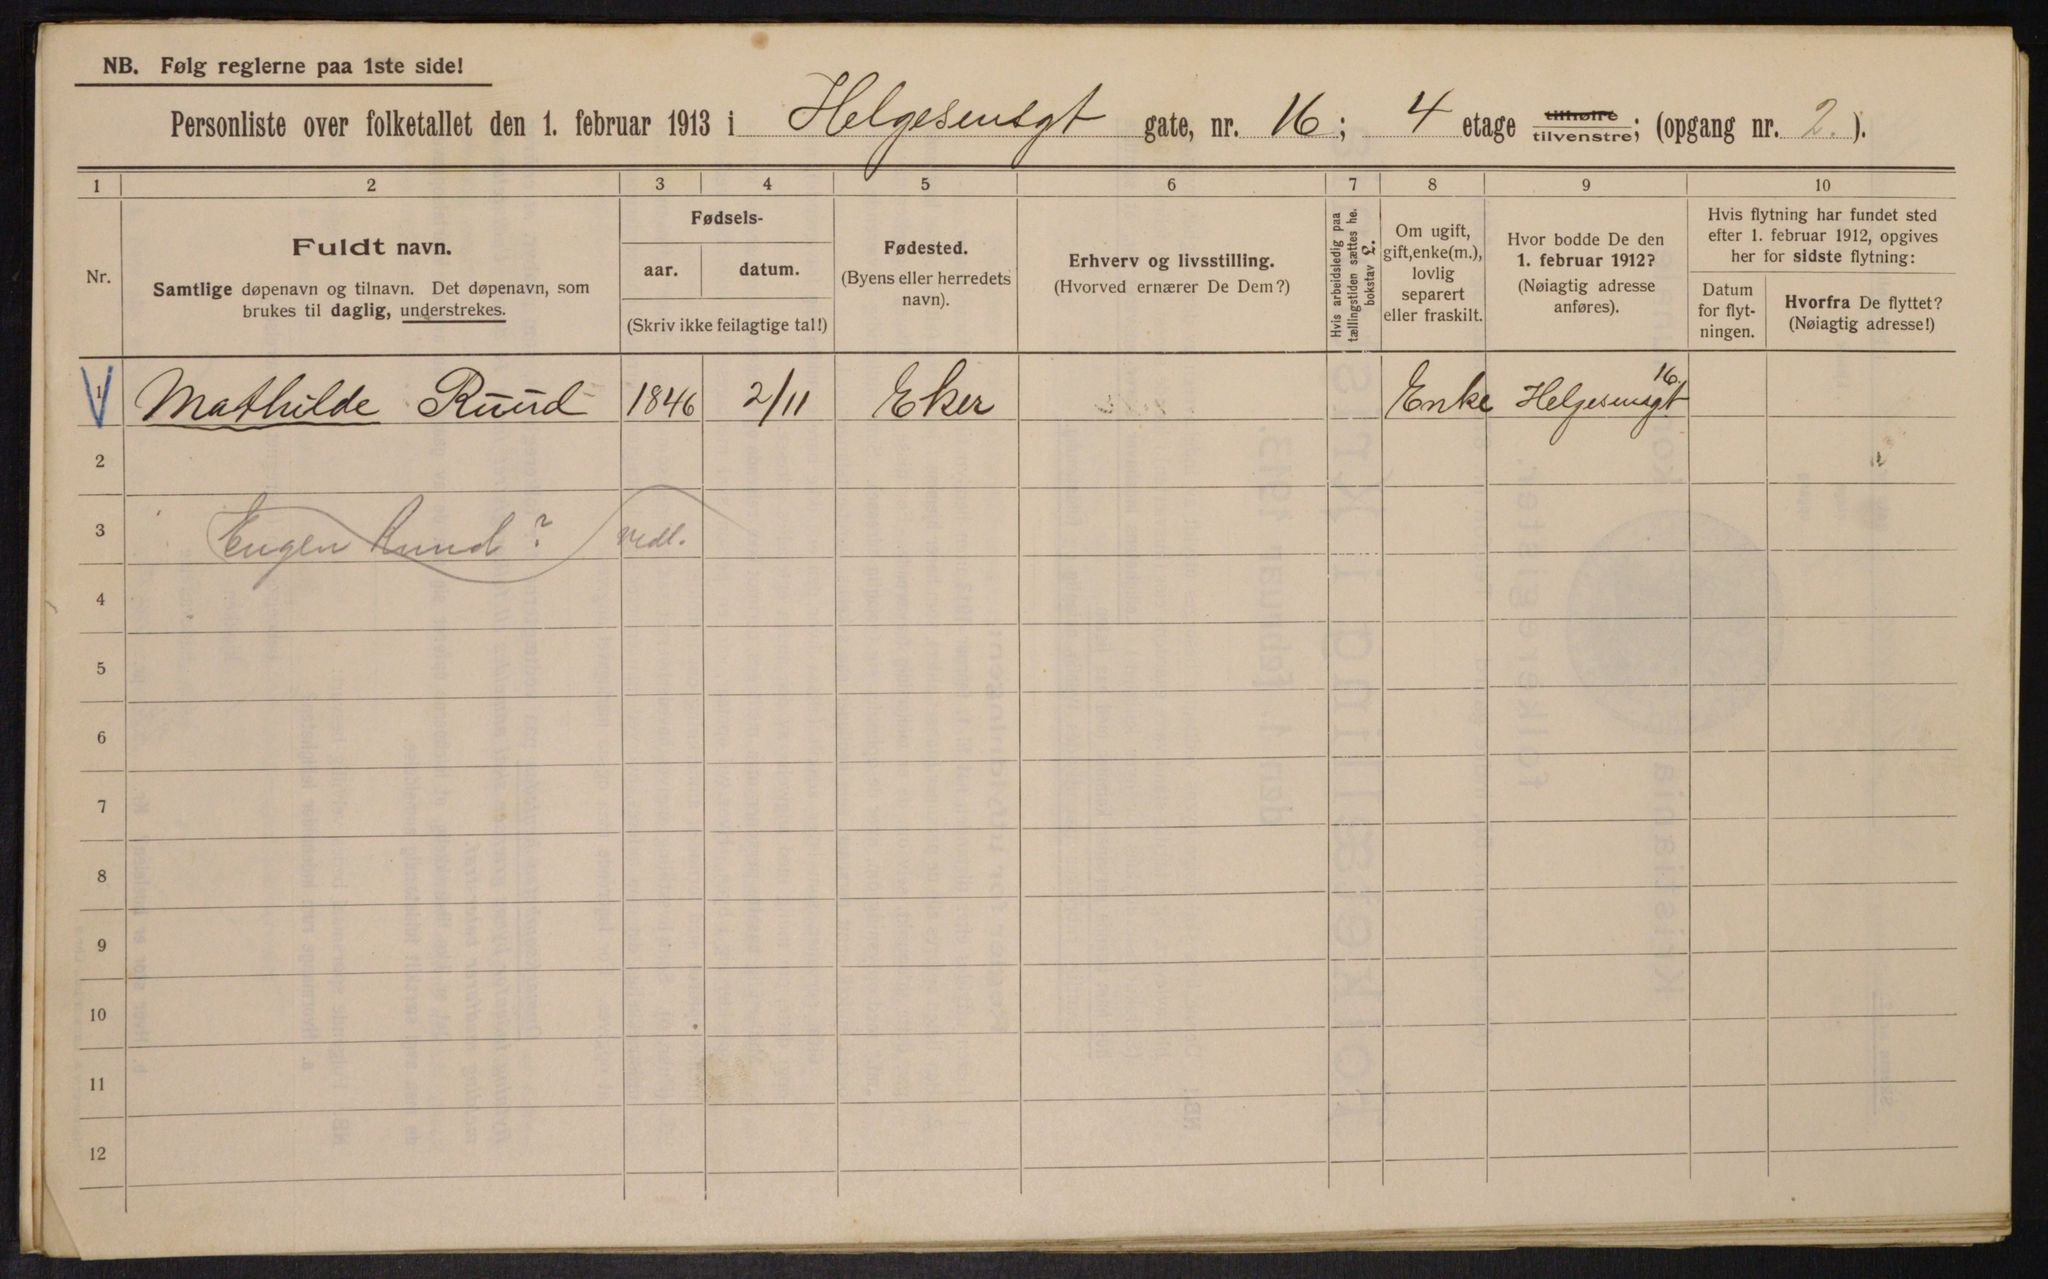 NB. Følg reglerne paa 1ste side!
Personliste over folketallet den 1. februar 1913 i Helgesensgt gate, nr. 16; 4 etage tilhøire tilvenstre; (opgang nr. 2.).
1 2 3 4 5 6 7 8 9 10
Nr.
Fuldt navn.
Samtlige døpenavn og tilnavn. Det døpenavn, som
brukes til daglig, understrekes.
Fødsels-
aar. datum.
(Skriv ikke feilagtige tal!)
Fødested.
(Byens eller herredets
navn).
Erhverv og livsstilling.
(Hvorved ernærer De Dem?)
Hvis arbeidsledig paa
tællingstiden sættes he.
bokstav L.
Om ugift,
gift, enke(m.),
lovlig
separert
eller fraskilt.
Hvor bodde De den
1. februar 1912?
(Nøiagtig adresse
anføres).
Hvis flytning har fundet sted
efter 1. februar 1912, opgives
her for sidste flytning:
Datum
for flyt-
ningen.
Hvorfra De flyttet?
(Nøiagtig adresse!)
1 Mathilde Ruud 1846 2/11 Eker Enke Helgesensgt 16.
2
3 Eugen Ruud? vedl.
4
5
6
7
8
9
10
11
12